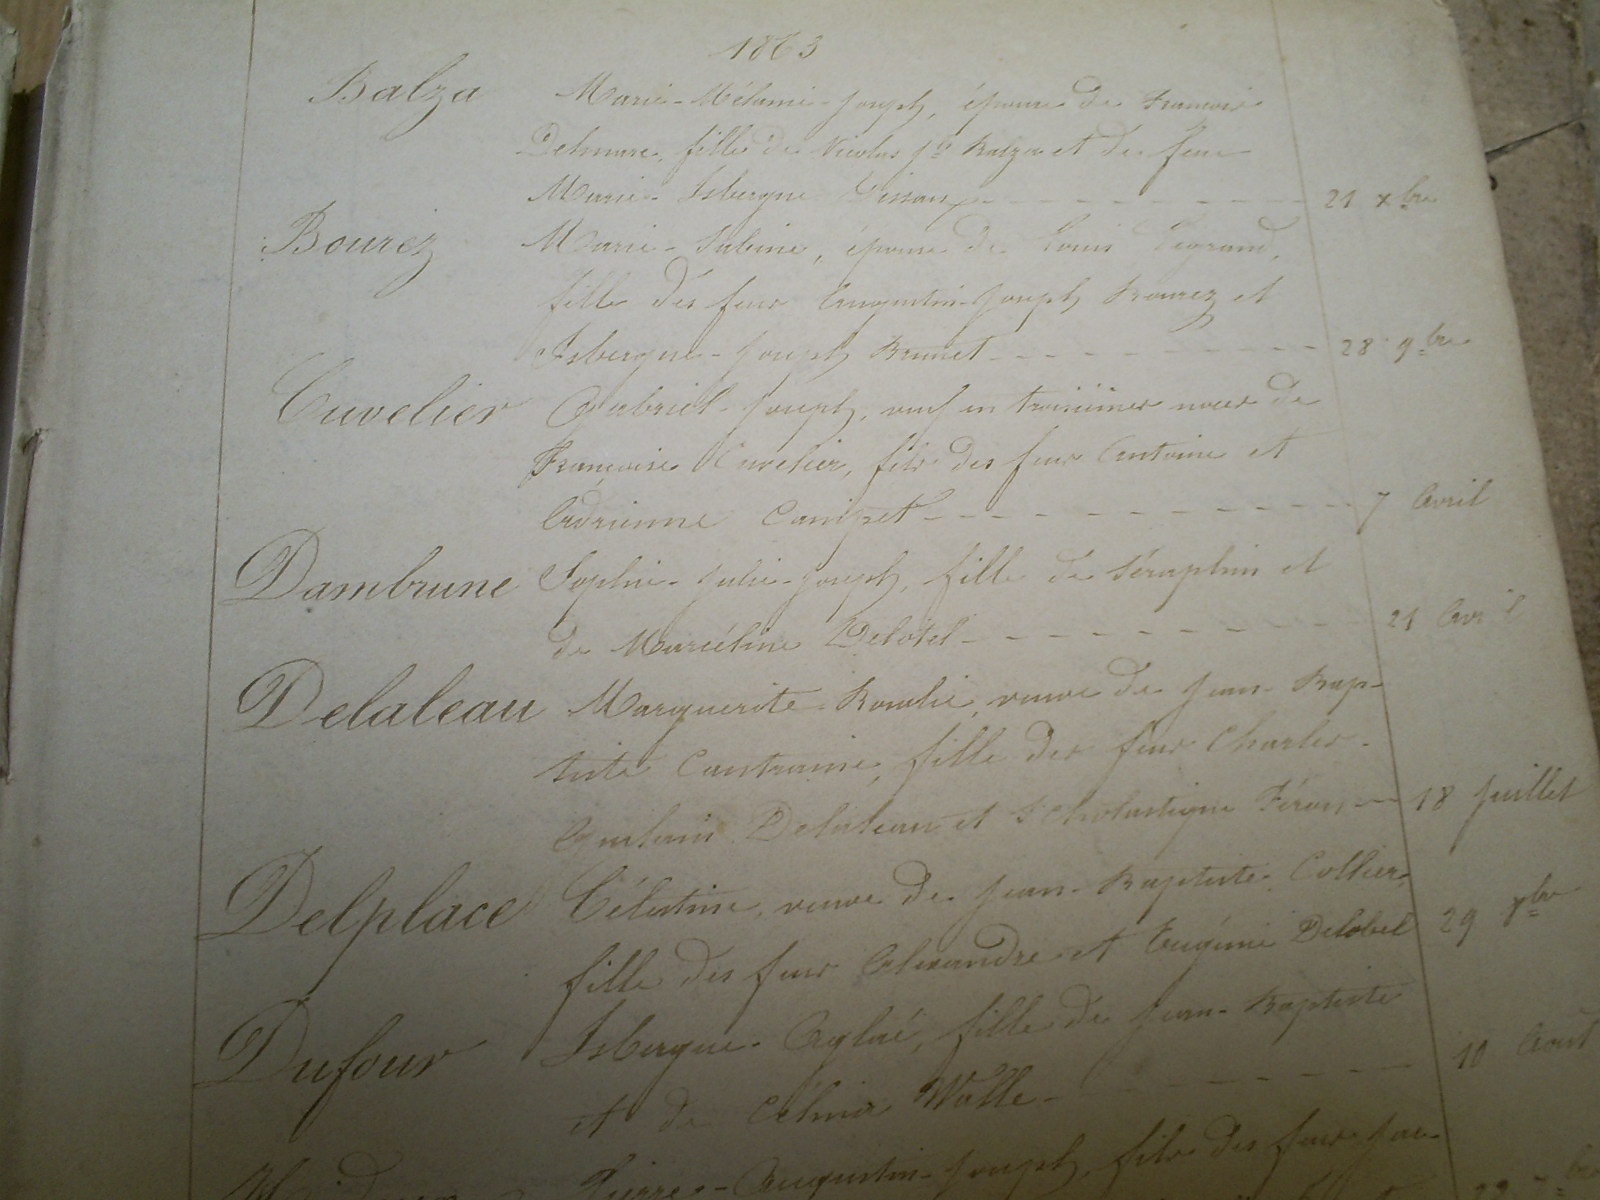 1863
Balza Marie-Mélanie-Joseph, épouse de François
Delmare, fille de Nicolas Jph Balza et de feue
Marie-Isbergue Tissan 21 xbre
Bourez Marie-Sabine, épouse de Louis Legrand,
fille des feus Augustin-Joseph Bourez et
Isbergue-Joseph Brunet 28 9bre
Cuvelier Gabriel-Joseph, veuf en troisièmes noces de
Françoise Cuvelier, fils des feus Antoine et
Adrienne Campet 7 Avril
Dambrune Sophie-Julie-Joseph, fille de Séraphin et
de Marcéline Delobel 21 Avril
Delaleau Marguerite-Rosalie, veuve de Jean-Bap-
tiste Cantraine, fille des feus Charles-
Guslain Delaleau et Scholastique Féron 18 Juillet
Delplace Célestine, veuve de Jean-Baptiste Collier,
fille des feus Alexandre et Eugénie Delobel 29
Dufour Isbergue-Aglaé, fille de Jean-Baptiste
et de Célina Walle 10 Août
Pierre-Augustin-Joseph, fils des feus